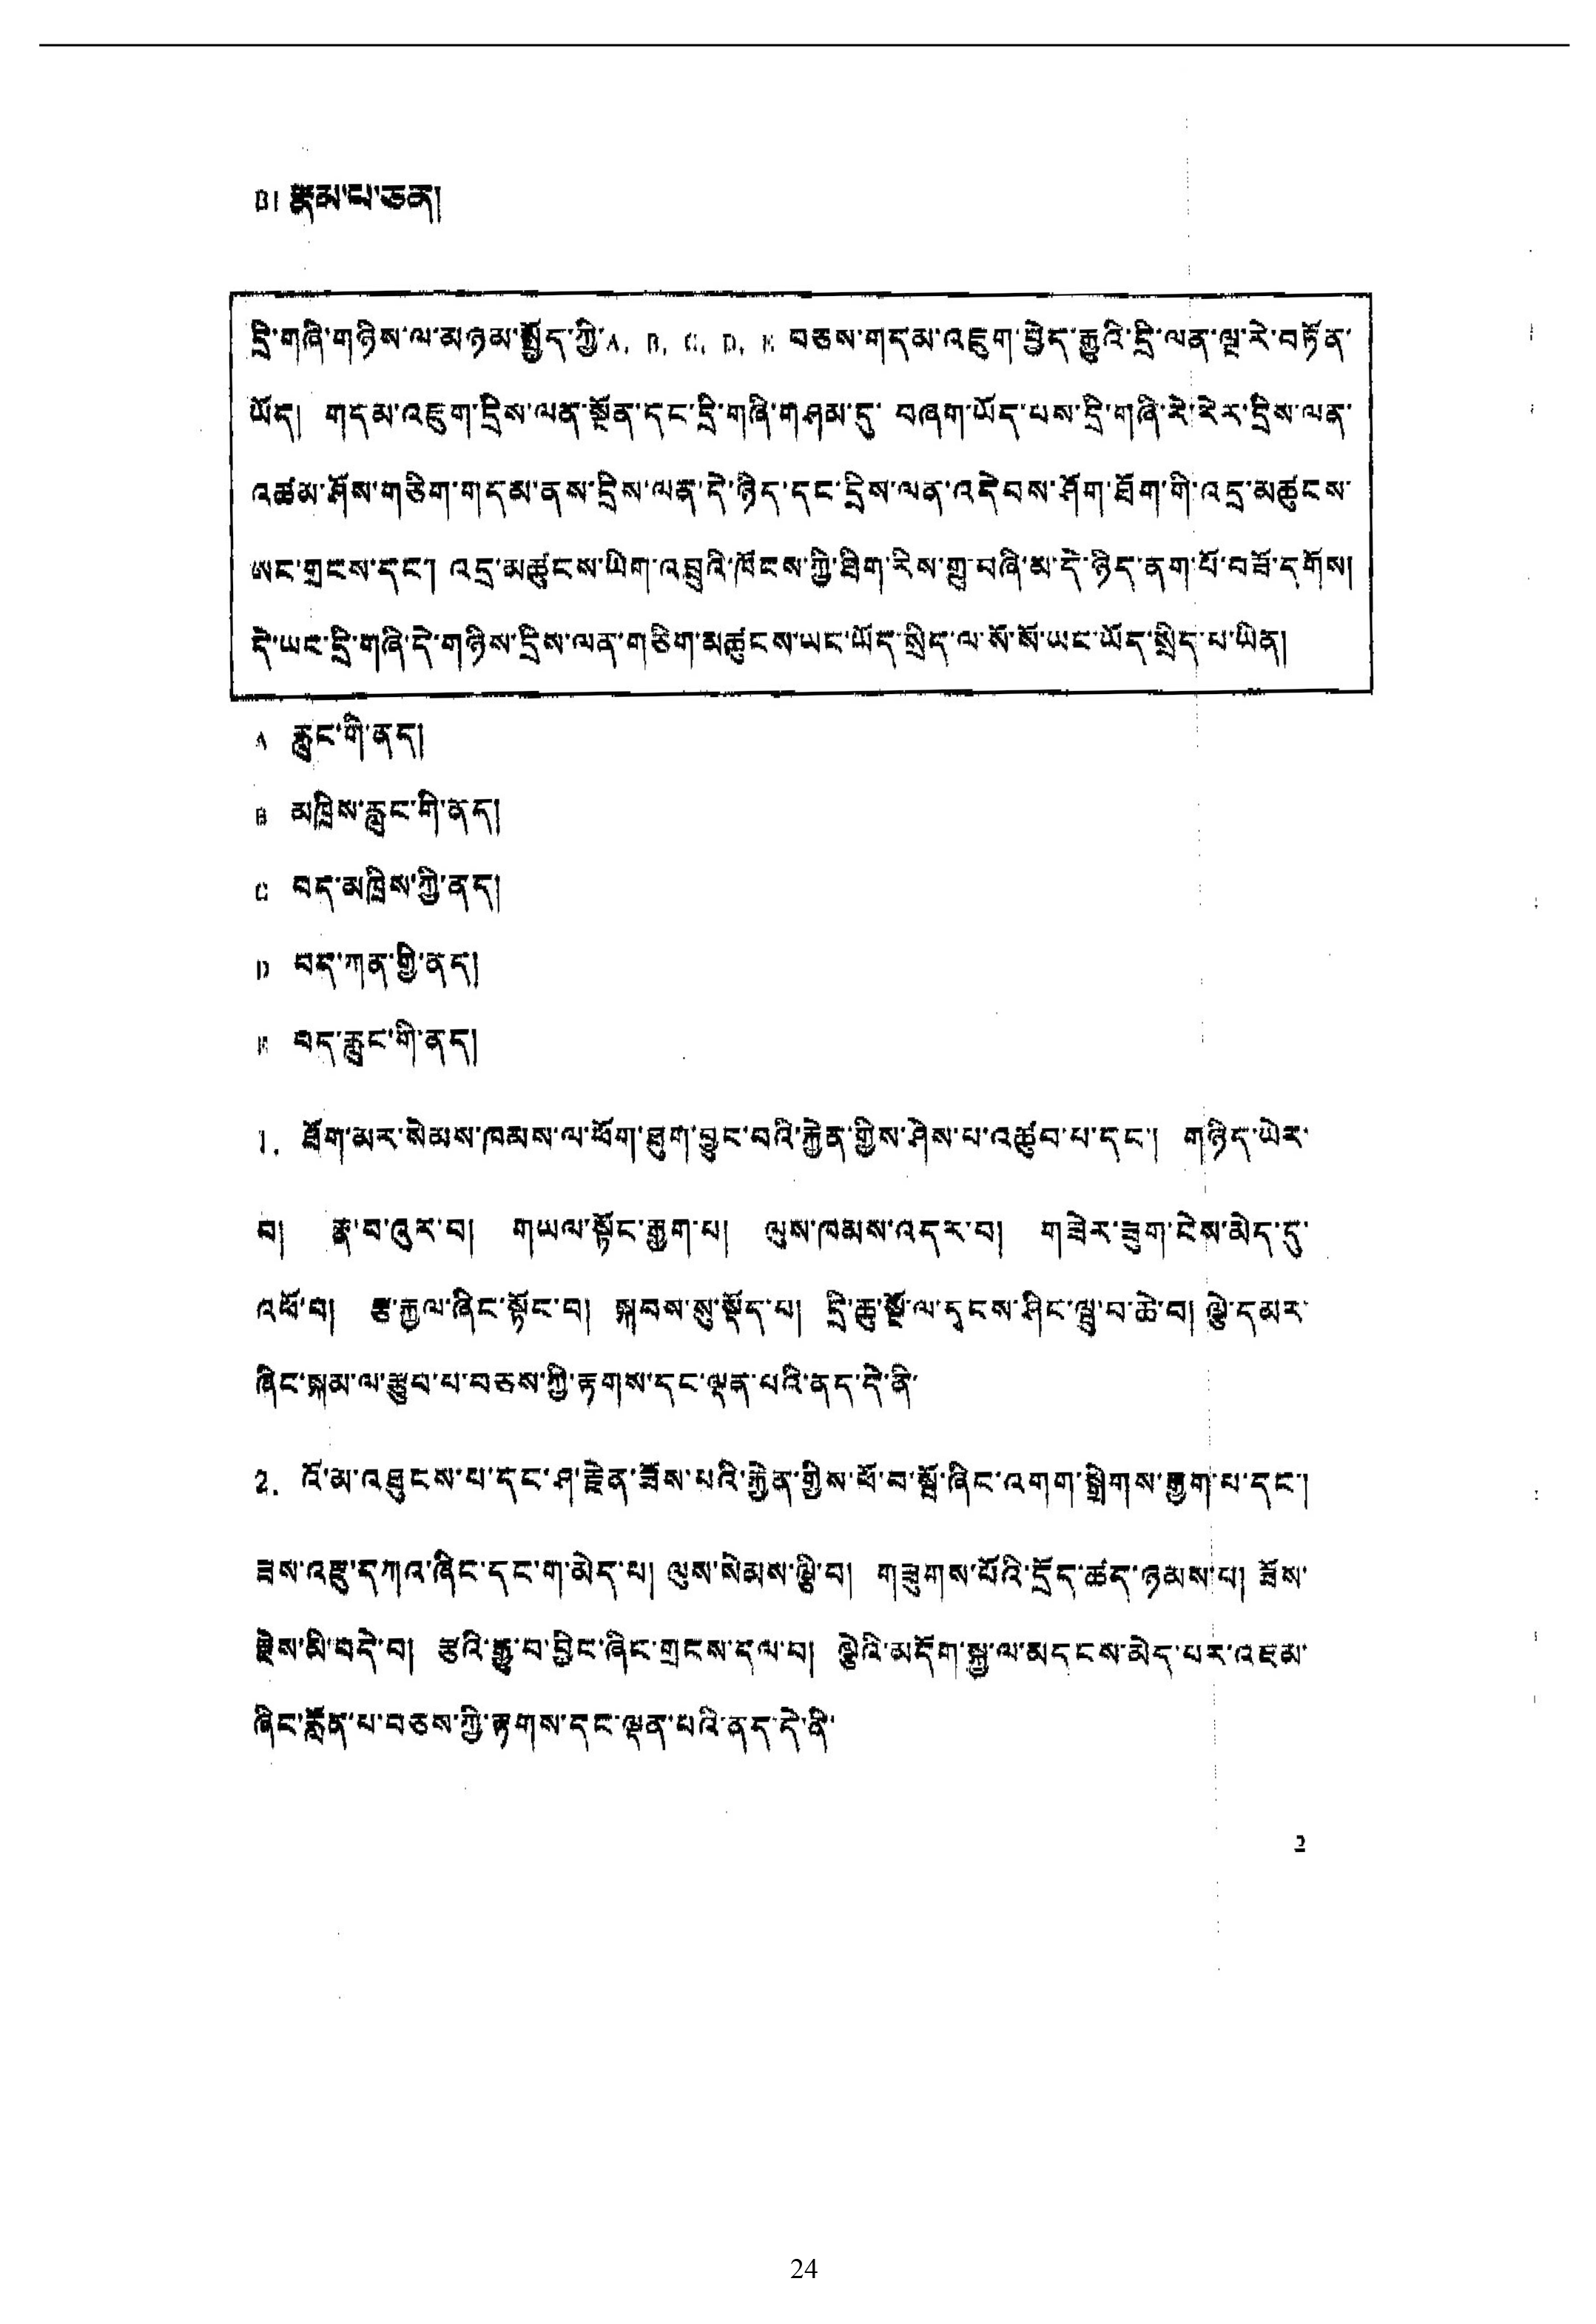 B1 རྣམ་པ་ཅན།
དྲི་གཞི་གཉིས་ལ་མཉམ་སྤྱོད་ཀྱི་A, B, C, D, E བཅས་གདམ་འཇུག་བྱེད་རྒྱུའི་དྲི་ལན་ལྔ་རེ་བཏོན་
ཡོད། གདམ་འཇུག་དྲིས་ལན་སྔོན་དང་དྲི་གཞི་གཤམ་དུ་ བཞག་ཡོད་པས་དྲི་གཞི་རེ་རེར་དྲིས་ལན་
འཚམ་ཤོས་གཅིག་གདམ་ནས་དྲིས་ལན་དེ་ཉིད་དང་དྲིས་ལན་འདེབས་ཤོག་ཐོག་གི་འདྲ་མཚུངས་
ཨང་གྲངས་དང་། འདྲ་མཚུངས་ཡིག་འབྲུའི་ཁོངས་ཀྱི་ཐིག་རིས་གྲུ་བཞི་མ་དེ་ཉིད་ནག་པོ་བཟོ་དགོས།
དེ་ཡང་དྲི་གཞི་དེ་གཉིས་དྲིས་ལན་གཅིག་མཚུངས་ཡང་ཡོད་སྲིད་ལ་སོ་སོ་ཡང་ཡོད་སྲིད་པ་ཡིན།
A རླུང་གི་ནད།
B མཁྲིས་རླུང་གི་ནད།
C བད་མཁྲིས་ཀྱི་ནད།
D བད་ཀན་གྱི་ནད།
E བད་རླུང་གི་ནད།
1. ཐོག་མར་སེམས་ཁམས་ལ་ཕོག་ཐུག་བྱུང་བའི་རྐྱེན་གྱིས་ཤེས་པ་འཚུབ་པ་དང་། གཉིད་ཡེར་
བ། རྣ་བ་འུར་བ། གཡལ་སྟོང་རྒྱག་པ། ལུས་ཁམས་འདར་བ། གཟེར་ཟུག་ངེས་མེད་དུ་
འཕོ་བ། རྩ་རྐྱལ་ཞིང་སྟོང་བ། སྐབས་སུ་སྡོད་པ། དྲི་ཆུ་སྔོ་ལ་དྭངས་ཤིང་ལྦུ་བ་ཆེ་བ། ལྕེ་དམར་
ཞིང་སྐམ་ལ་རྩུབ་པ་བཅས་ཀྱི་རྟགས་དང་ལྡན་པའི་ནད་དེ་ནི་
2. འོ་མ་འཐུངས་པ་དང་ཤ་རྗེན་ཟོས་པའི་རྐྱེན་གྱིས་ཕོ་བ་སྦོ་ཞིང་འགག་སྒྲིགས་རྒྱག་པ་དང་།
ཟས་འཇུ་དཀའ་ཞིང་དང་ག་མེད་པ། ལུས་སེམས་ལྕི་བ། གཟུགས་པོའི་དྲོད་ཚད་ཉམས་པ། ཟོས་
རྗེས་མི་བདེ་བ། རྩའི་རྒྱུ་བ་བྱིང་ཞིང་གྲངས་དལ་བ། ལྕེའི་མདོག་སྐྱ་ལ་མདངས་མེད་པར་འཇམ་
ཞིང་རློན་པ་བཅས་ཀྱི་རྟགས་དང་ལྡན་པའི་ནད་དེ་ནི་
2
24